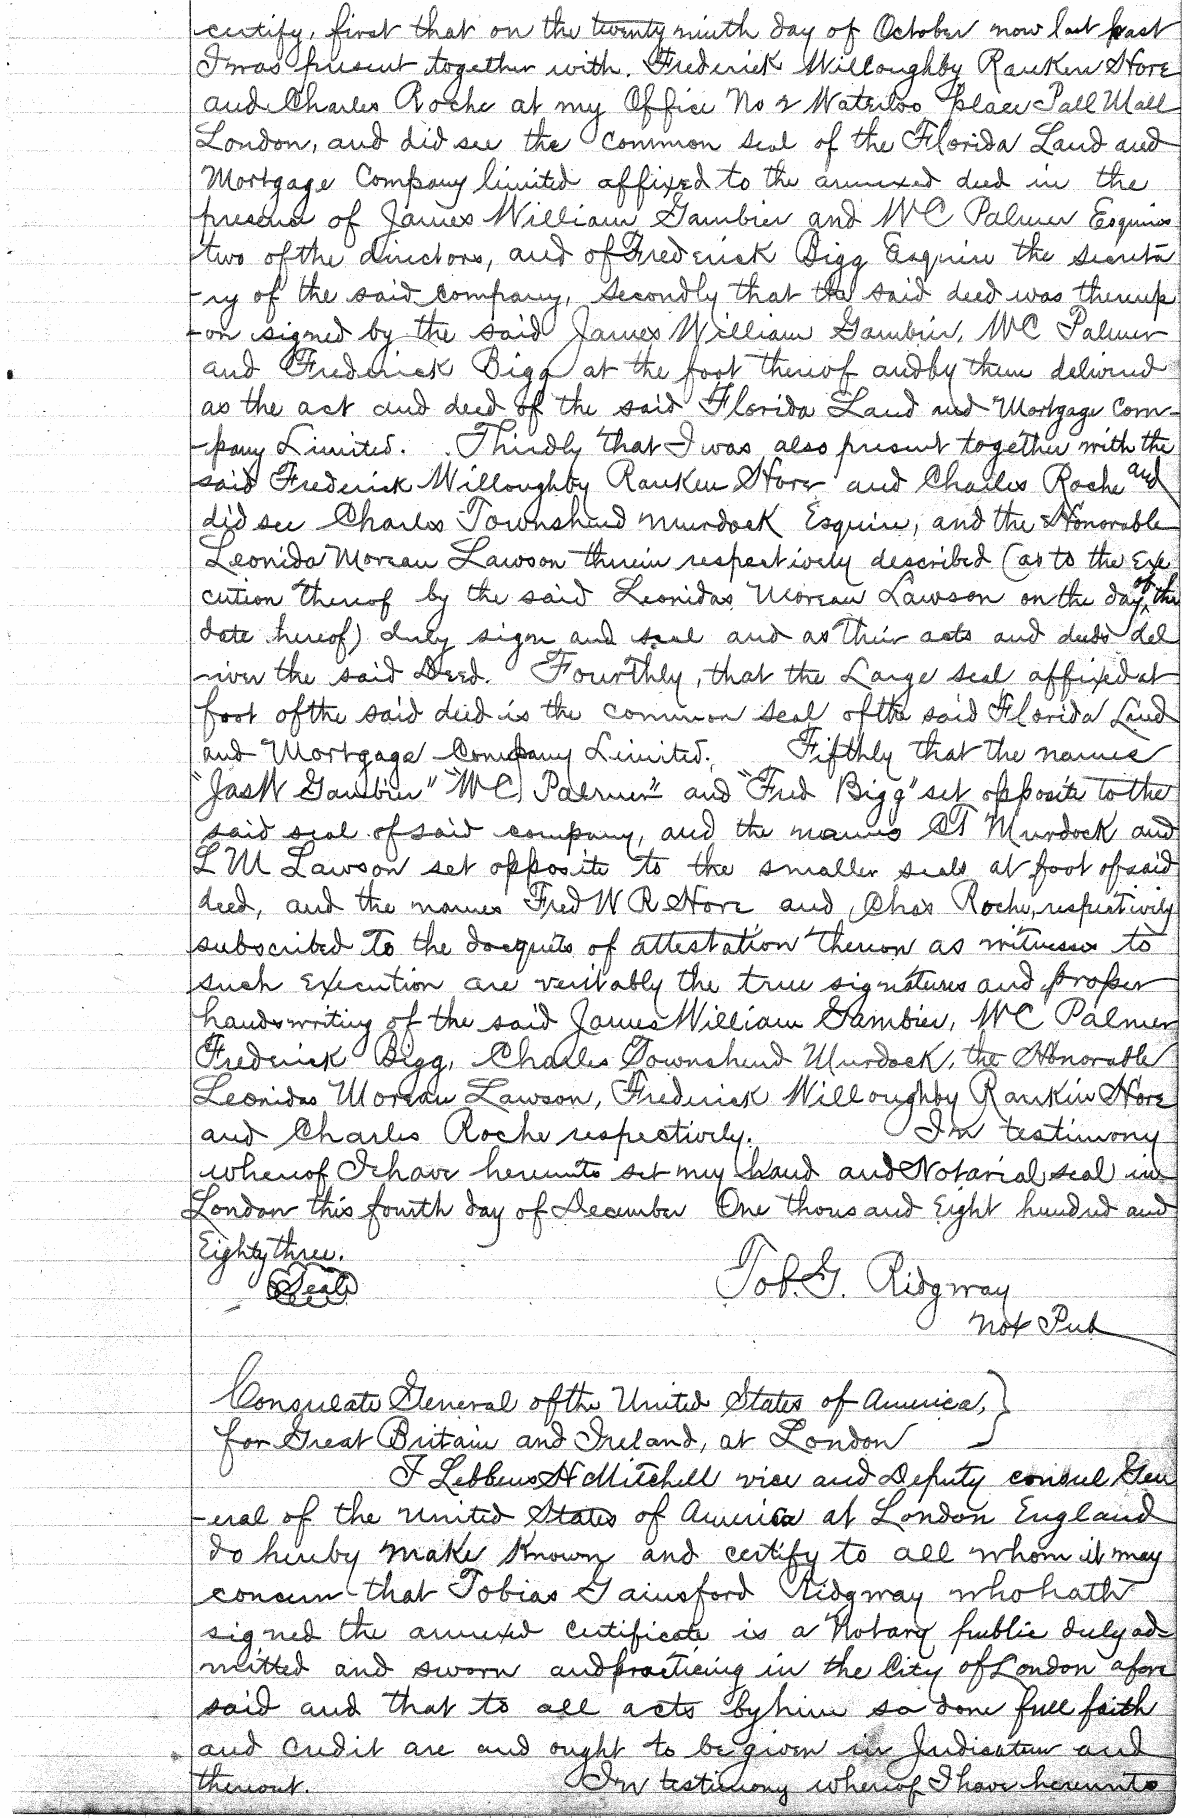 certify, first that on the twenty ninth day of October now last past
I was present together with. Frederick Willoughby Ranken Hore
and Charles Roche at my Office No 2 Waterloo place Pall Mall
London, and did see the common seal of the Florida Land and
Mortgage Company limited affixed to the annexed deed in the
presence of James William Gambier and WC Palmer Esquires
two of the directors, and of Frederick Bigg Esquire the secreta
-ry of the said company, secondly that the said deed was thereup
-on signed by the said James William Gambier, WC Palmer
and Frederick Bigg at the foot thereof and by them delivered
as the act and deed of the said Florida Land and Mortgage Com-
-pany Limited. Thirdly that I was also present together with the
said Frederick Willoughby Ranken Hore and Charles Roche and
did see Charles Townshend Murdock Esquire, and the Honorable
Leonida Moreau Lawson therein respectively described (as to the Exe
cution thereof by the said Leonidas Moreau Lawson on the day of the
date hereof) duly sign and seal and as their acts and deeds del
-iver the said Deed. Fourthly, that the Large seal affixed at
foot of the said deed is the common seal of the said Florida Land
and Mortgage Company Limited. Fifthly that the names
"Jas W Gambier" "WC Palmer" and "Fred Bigg" set opposite to the
said seal of said company, and the names CT Murdock and
L M Lawson set opposite to the smaller seals at foot of said
deed, and the names Fred W R Hore and Chas Roche, respectively
subscribed to the docquets of attestation thereon as witnesses to
such execution are veritably the true signatures and proper
handswriting of the said James William Gambier, WC Palmer
Frederick Bigg, Charles Townshend Murdock, the Honorable
Leonidas Moreau Lawson, Frederick Willoughby Rankin Hore
and Charles Roche respectively. In testimony
whereof I have hereunto set my hand and Notarial seal in
London this fourth day of December One thousand Eight hundred and
Eighty three.
Seal Tob. G. Ridgway
Not Pub
Consulate General of the United States of America, }
for Great Britain and Ireland, at London
I Lebbeus H Mitchell vice and Deputy consul Gen
-eral of the United States of America at London England
do hereby make known and certify to all whom it may
concern that Tobias Gainsford Ridgway who hath
signed the annexed certificate is a Notary public duly ad-
mitted and sworn and practicing in the City of London afore
said and that to all acts by him so done full faith
and credit are and ought to be given in Judicature and
thereout. In testimony whereof I have hereunto